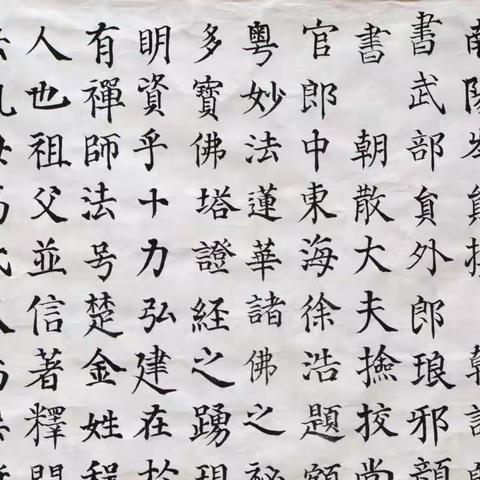 南陽岑勛撰 朝議
書武部員外郎琅邪顏
書 朝散大夫撿挍尚
官郎中東海徐浩題額
粵妙法蓮華諸佛之祕
多寶佛塔證経之踴現
明資乎十力弘建在於
有禪師法号楚金姓程
人也祖父並信著釋門